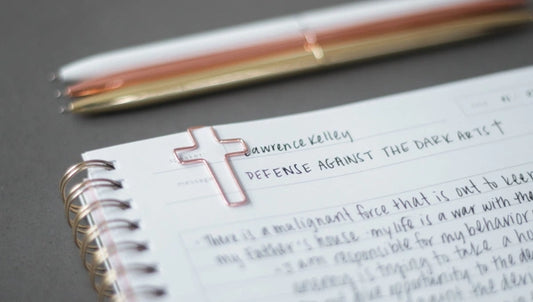 Lawrence Kelley
message
DEFENSE AGAINST THE DARK ARTS †
- There is a malignant force that is out to keep
my father's house. my life is a war with the
- I am responsible for my behavior
enemy is trying to take a
opportunity to the
the